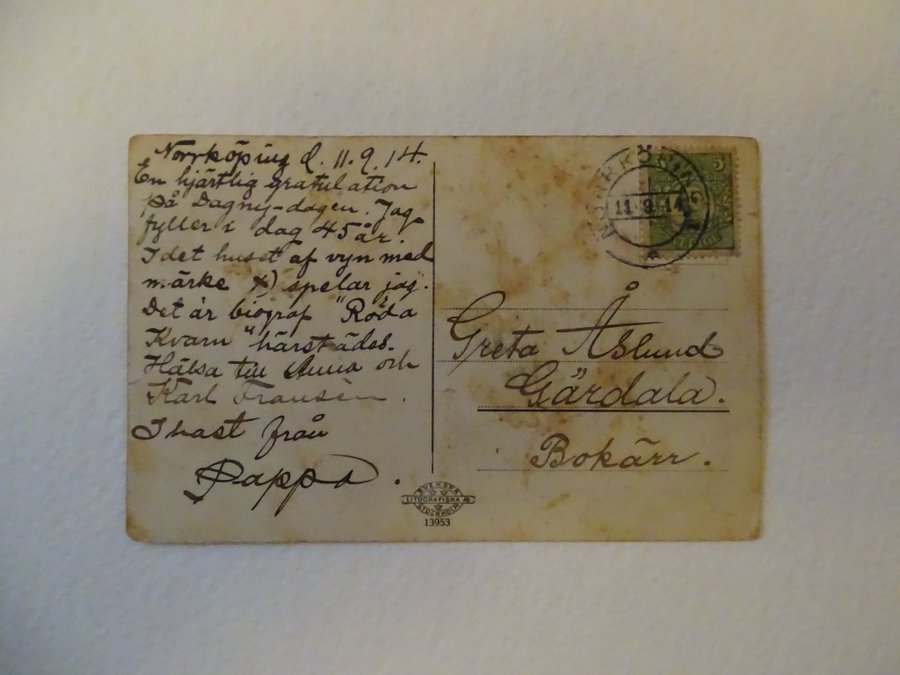 Norrköping d. 11.9.14.
En hjärtlig gratulation
på Dagny-dagen. Jag
fyller i dag 45 år.
I det huset af vyn med
märke x) spelar jag.
Det är biograf "Röda
Kvarn" härstädes.
Hälsa till Anna och
Karl Fransén.
I hast från
Pappa.
NORRKÖPING
11.9.14
5
Greta Åslund
Gärdala.
Bokärr.
SVENSKA
LITOGRAFISKA AB
STOCKHOLM
13953